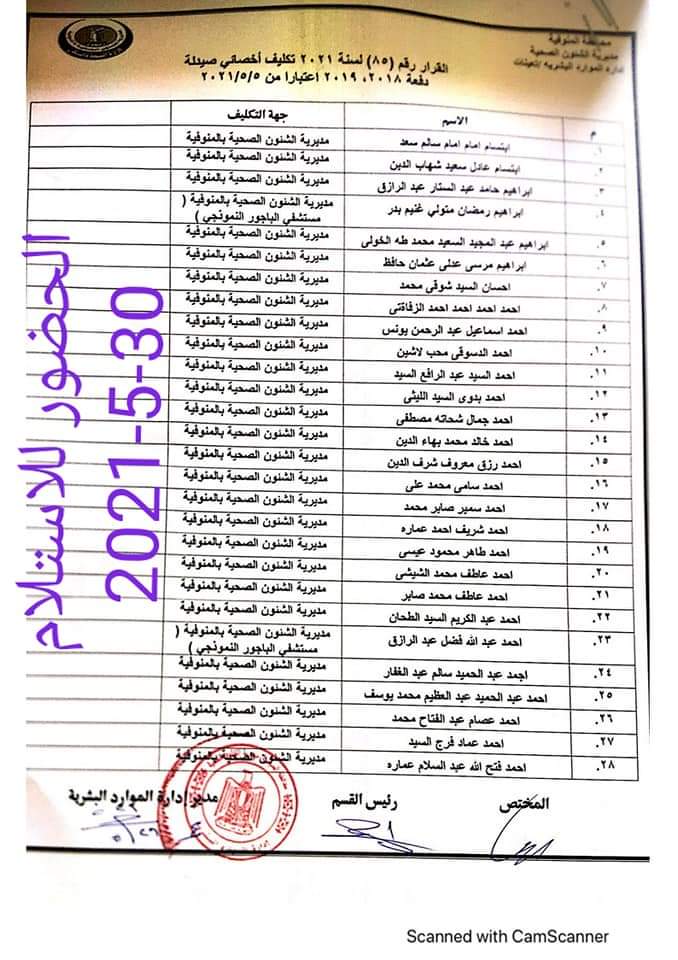 محافظة المنوفية
مديرية الشئون الصحية
إدارة الموارد البشرية /تعينات
القرار رقم (٨٥) لسنة ٢٠٢١ تكليف أخصائي صيدلة
دفعة ٢٠١٨، ٢٠١٩ اعتبارا من ٢٠٢١/٥/٥
م الاسم جهة التكليف
١. ابتسام امام امام سالم سعد مديرية الشئون الصحية بالمنوفية
٢. ابتسام عادل سعيد شهاب الدين مديرية الشئون الصحية بالمنوفية
٣. ابراهيم حامد عبد الستار عبد الرازق مديرية الشئون الصحية بالمنوفية
٤. ابراهيم رمضان متولي غنيم بدر مديرية الشئون الصحية بالمنوفية (
مستشفي الباجور النموذجي )
٥. ابراهيم عبد المجيد السعيد محمد طه الخولى مديرية الشئون الصحية بالمنوفية
٦. ابراهيم مرسى عدلى عثمان حافظ مديرية الشئون الصحية بالمنوفية
٧. احسان السيد شوقى محمد مديرية الشئون الصحية بالمنوفية
٨. احمد احمد احمد احمد الزفاتى مديرية الشئون الصحية بالمنوفية
٩. احمد اسماعيل عبد الرحمن يونس مديرية الشئون الصحية بالمنوفية
١٠. احمد الدسوقى محب لاشين مديرية الشئون الصحية بالمنوفية
١١. احمد السيد عبد الرافع السيد مديرية الشئون الصحية بالمنوفية
١٢. احمد بدوى السيد الليثى مديرية الشئون الصحية بالمنوفية
١٣. احمد جمال شحاته مصطفى مديرية الشئون الصحية بالمنوفية
١٤. احمد خالد محمد بهاء الدين مديرية الشئون الصحية بالمنوفية
١٥. احمد رزق معروف شرف الدين مديرية الشئون الصحية بالمنوفية
١٦. احمد سامى محمد على مديرية الشئون الصحية بالمنوفية
١٧. احمد سمير صابر محمد مديرية الشئون الصحية بالمنوفية
١٨. احمد شريف احمد عماره مديرية الشئون الصحية بالمنوفية
١٩. احمد طاهر محمود عيسى مديرية الشئون الصحية بالمنوفية
٢٠. احمد عاطف محمد الشيشى مديرية الشئون الصحية بالمنوفية
٢١. احمد عاطف محمد صابر مديرية الشئون الصحية بالمنوفية
٢٢. احمد عبد الكريم السيد الطحان مديرية الشئون الصحية بالمنوفية
٢٣. احمد عبد الله فضل عبد الرازق مديرية الشئون الصحية بالمنوفية (
مستشفي الباجور النموذجي )
٢٤. احمد عبد الحميد سالم عبد الغفار مديرية الشئون الصحية بالمنوفية
٢٥. احمد عبد الحميد عبد العظيم محمد يوسف مديرية الشئون الصحية بالمنوفية
٢٦. احمد عصام عبد الفتاح محمد مديرية الشئون الصحية بالمنوفية
٢٧. احمد عماد فرج السيد مديرية الشئون الصحية بالمنوفية
٢٨. احمد فتح الله عبد السلام عماره مديرية الشئون الصحية بالمنوفية
المختص رئيس القسم مدير إدارة الموارد البشرية
الحضور للاستلام
2021-5-30
Scanned with CamScanner